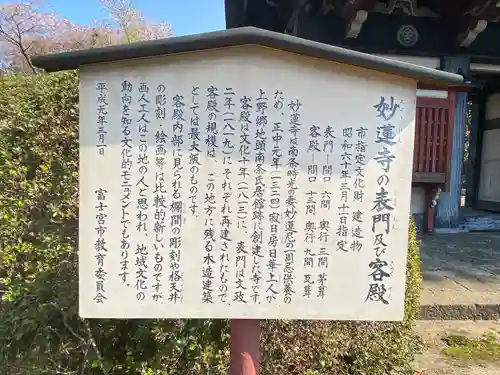 妙蓮寺の表門及び客殿
市指定文化財 建造物
昭和六十年三月十一日指定
表門―間口 六間 奥行 三間 茅葺
客殿―間口 十三間 奥行 九間 瓦葺
妙蓮寺は南条時光の妻妙蓮尼の一周忌供養の
ため、正中元年(一三二四)寂日房日華上人が
上野郷地頭南条氏居館跡に創建した寺です。
客殿は文化十年(一八一三)に、表門は文政
二年(一八一九)にそれぞれ再建されたもので、
客殿の規模は、この地方に残る木造建築
としては最大級のものです。
客殿内部に見られる欄間の彫刻や格天井
の彫刻、絵画等は比較的新しいものですが
画人工人はこの地の人と思われ、地域文化の
動向を知る文化的モニュメントでもあります。
平成元年三月一日
富士宮市教育委員会